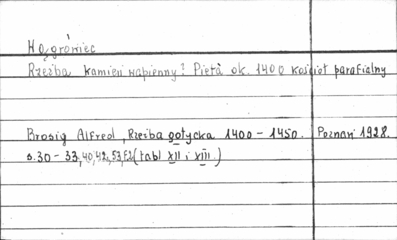 Hażgrówiec
Rzeźba kamień wapienny? Pietà ok. 1400 kościół parafialny
Brosig Alfred, Rzeźba gotycka 1400-1450. Poznań 1928.
s. 30-33, 40, 42, 53, 52 (tabl XII i XIII.)